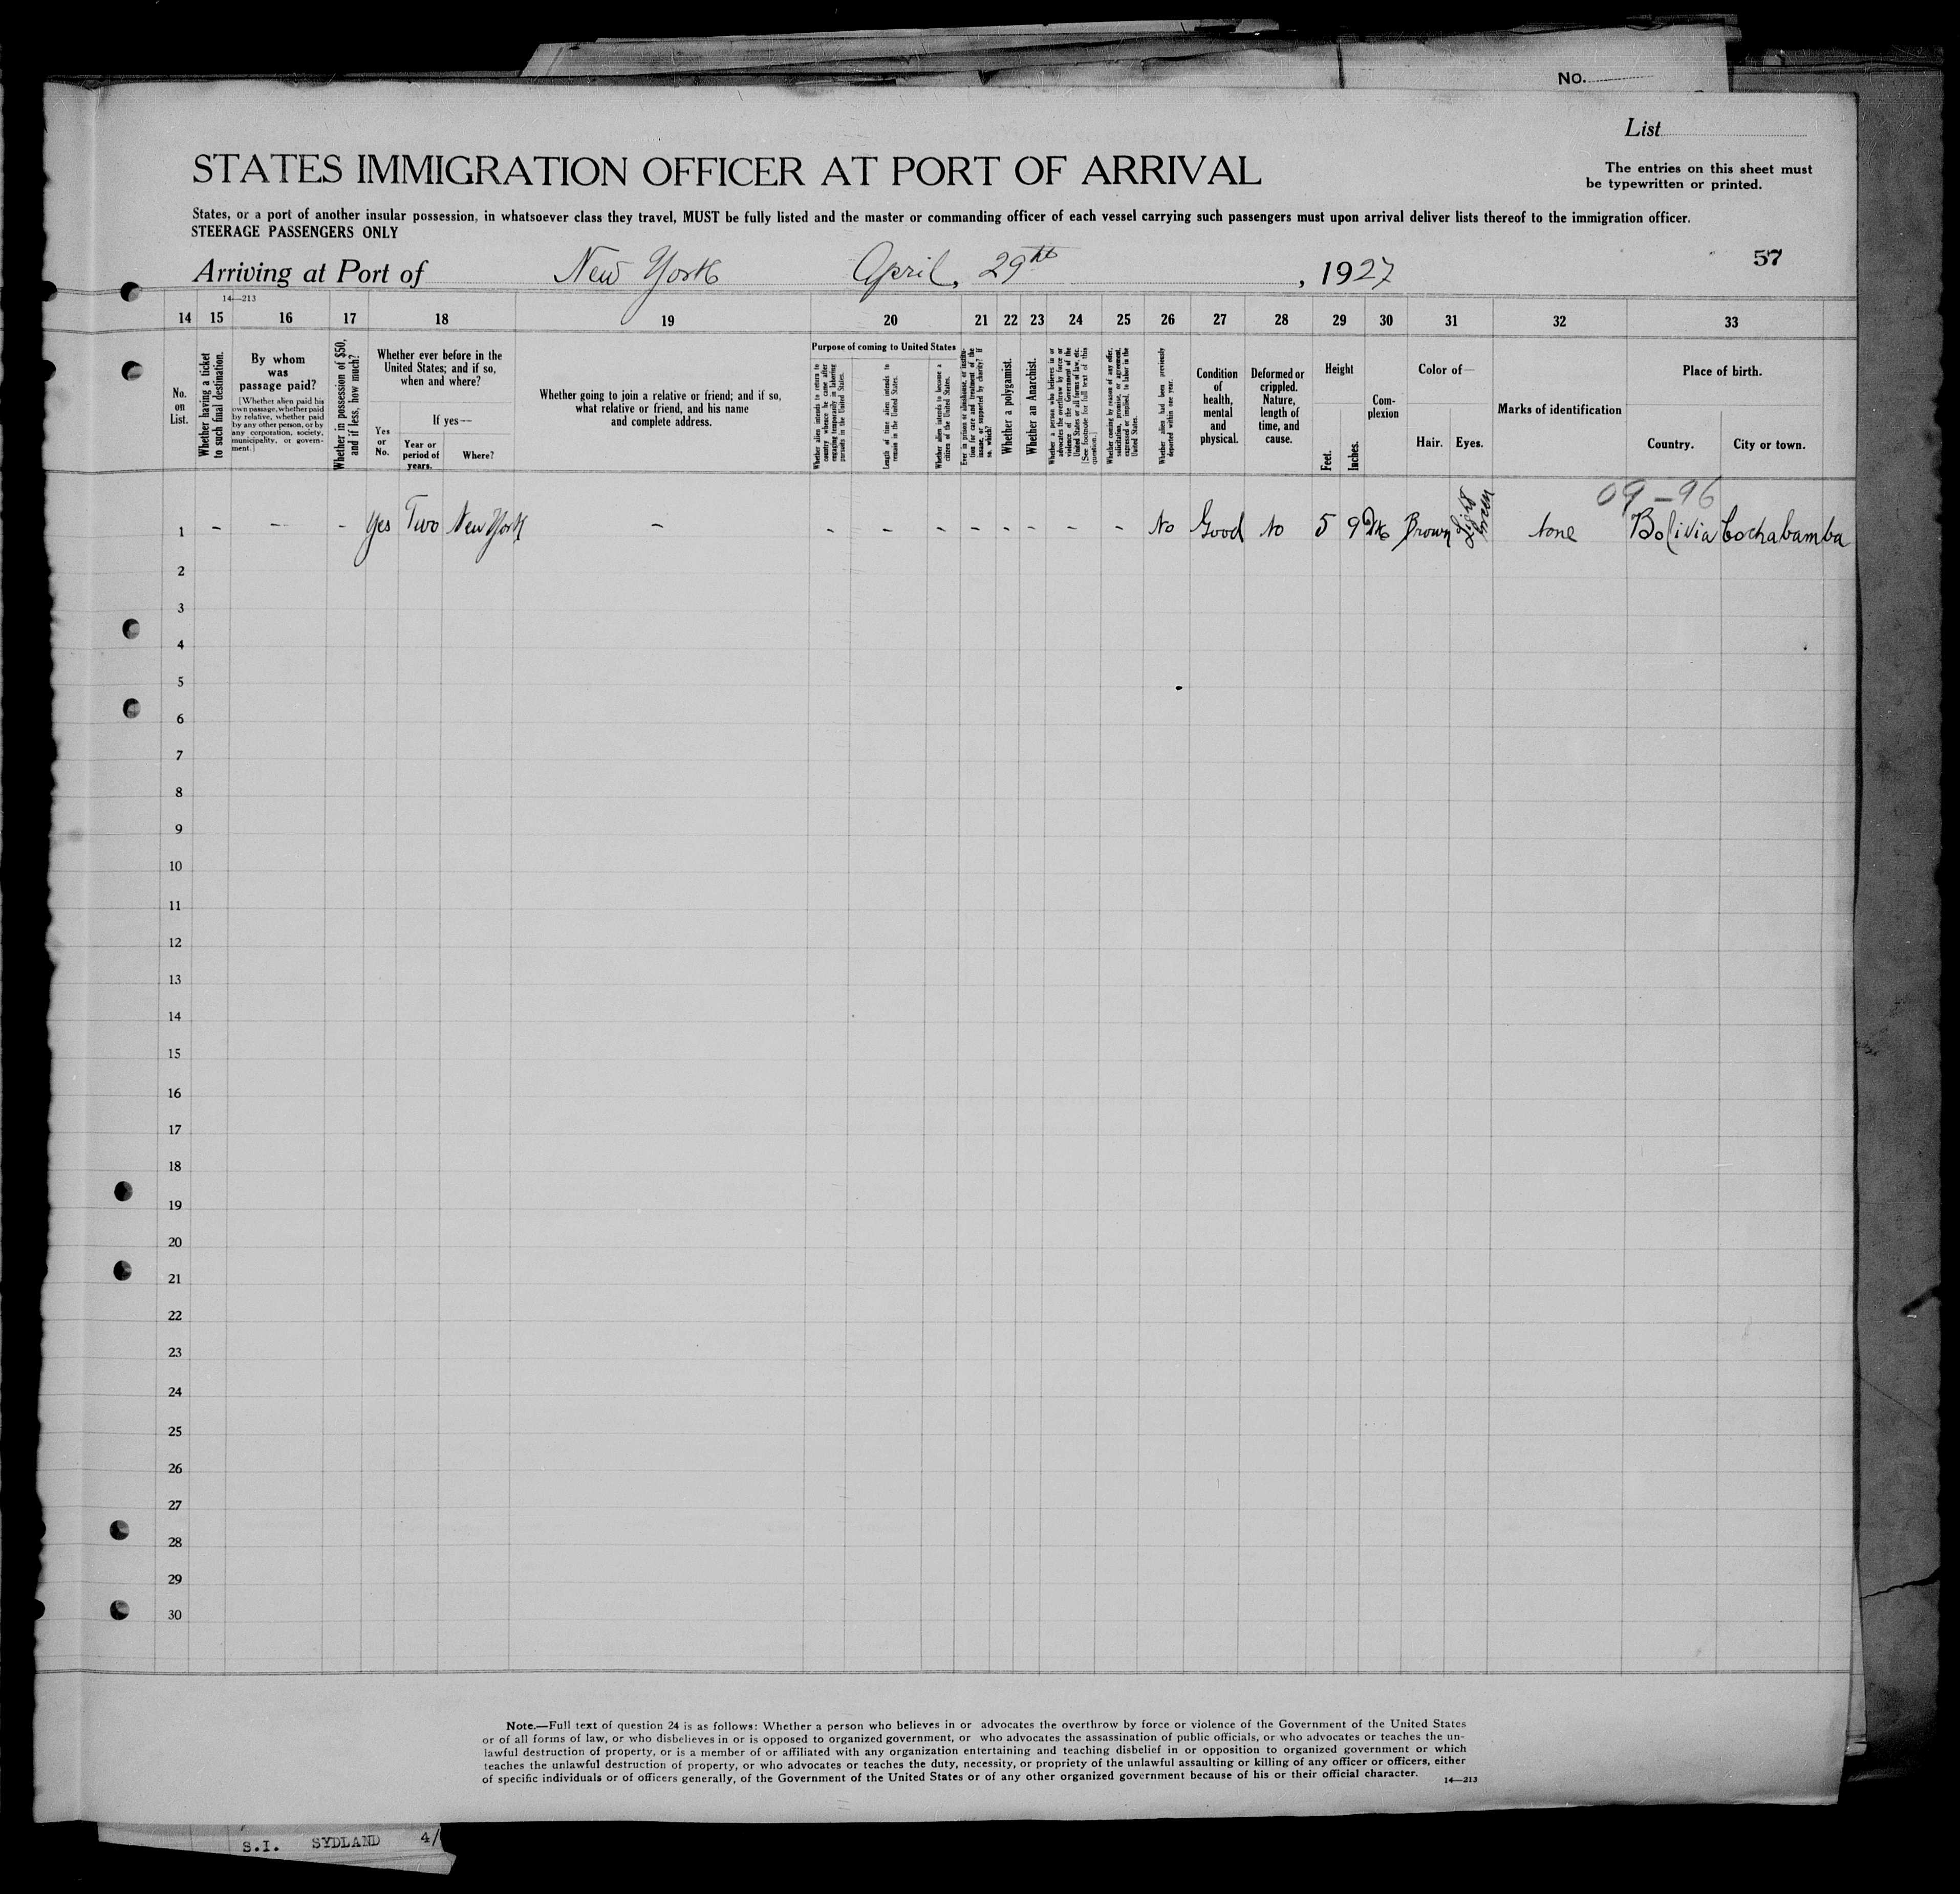 NO.
List
STATES IMMIGRATION OFFICER AT PORT OF ARRIVAL
The entries on this sheet must
be typewritten or printed.
States, or a port of another insular possession, in whatsoever class they travel, MUST be fully listed and the master or commanding officer of each vessel carrying such passengers must upon arrival deliver lists thereof to the immigration officer.
STEERAGE PASSENGERS ONLY
57
Arriving at Port of New York April, 29th, 1927
14—213
14 15 16 17 18 19 20 21 22 23 24 25 26 27 28 29 30 31 32 33
No. on List.
Whether having a ticket to such final destination.
By whom was passage paid?
[Whether alien paid his own passage, whether paid by relative, whether paid by any other person, or by any corporation, society, municipality, or government.]
Whether in possession of $50, and if less, how much?
Whether ever before in the United States; and if so, when and where?
Yes or No.
If yes—
Year or period of years.
Where?
Whether going to join a relative or friend; and if so, what relative or friend, and his name and complete address.
Purpose of coming to United States
Whether alien intends to return to country whence he came after engaging temporarily in laboring pursuits in the United States.
Length of time alien intends to remain in the United States.
Whether alien intends to become a citizen of the United States.
Ever in prison or almshouse, or institution for care and treatment of the insane, or supported by charity? If so, which?
Whether a polygamist.
Whether an Anarchist.
Whether a person who believes in or advocates the overthrow by force or violence of the Government of the United States or all forms of law, etc. [See footnote for full text of this question.]
Whether coming by reason of any offer, solicitation, promise, or agreement, expressed or implied, to labor in the United States.
Whether alien had been previously deported within one year.
Condition of health, mental and physical.
Deformed or crippled. Nature, length of time, and cause.
Height
Feet.
Inches.
Complexion
Color of—
Hair.
Eyes.
Marks of identification
Place of birth.
Country.
City or town.
09-96
1 - - - Yes Two New York - - - - - - - - - No Good No 5 9 Dk Brown Light Green None Bolivia Cochabamba
2
3
4
5
6
7
8
9
10
11
12
13
14
15
16
17
18
19
20
21
22
23
24
25
26
27
28
29
30
Note.—Full text of question 24 is as follows: Whether a person who believes in or advocates the overthrow by force or violence of the Government of the United States
or of all forms of law, or who disbelieves in or is opposed to organized government, or who advocates the assassination of public officials, or who advocates or teaches the un-
lawful destruction of property, or is a member of or affiliated with any organization entertaining and teaching disbelief in or opposition to organized government or which
teaches the unlawful destruction of property, or who advocates or teaches the duty, necessity, or propriety of the unlawful assaulting or killing of any officer or officers, either
of specific individuals or of officers generally, of the Government of the United States or of any other organized government because of his or their official character.
14—213
S.I. SYDLAND 4/